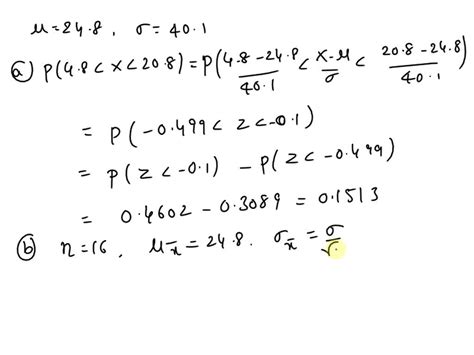 μ=24.8, σ=40.1
(a) P(4.8<x<20.8)=P(4.8-24.8/40.1 < x-μ/σ < 20.8-24.8/40.1)
= P(-0.499<z<-0.1)
= P(z<-0.1) - P(z<-0.499)
= 0.4602-0.3089=0.1513
(b) n=16, μx̄=24.8. σx̄=σ/√